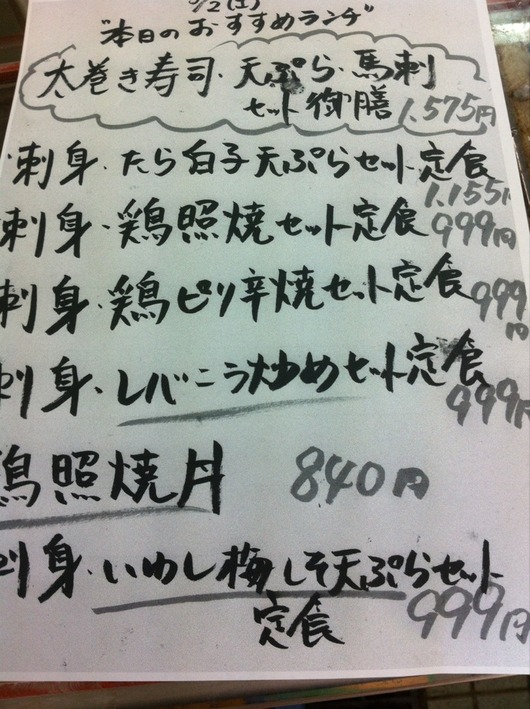 2(土)
"本日のおすすめランチ"
太巻き寿司・天ぷら・馬刺
セット御膳 1.575円
刺身・たら白子天ぷらセット定食
1.155円
刺身・鶏照焼セット定食 999円
刺身・鶏ピリ辛焼セット定食 999
円
刺身・レバニラ炒めセット定食
999円
鶏照焼丼 840円
刺身・いわし梅しそ天ぷらセット
定食 999円